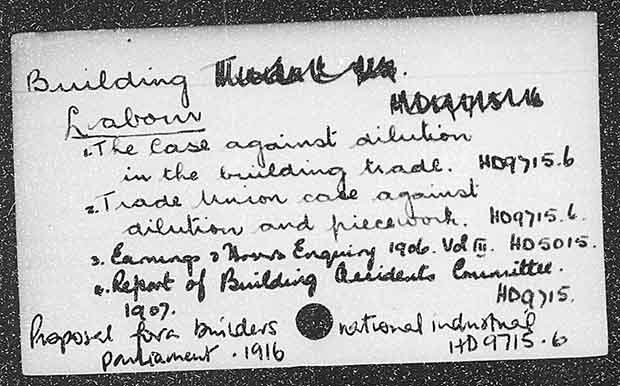 Building
Labour
1. The Case against dilution
in the building trade. HD9715.6
2. Trade Union case against
dilution and piecework. HD9715.6.
3. Earnings & Hours Enquiry 1906. Vol III. HD5015.
4. Report of Building Accidents Committee.
1907. HD9715.
Proposal for a builders national industrial
parliament. 1916 HD9715.6